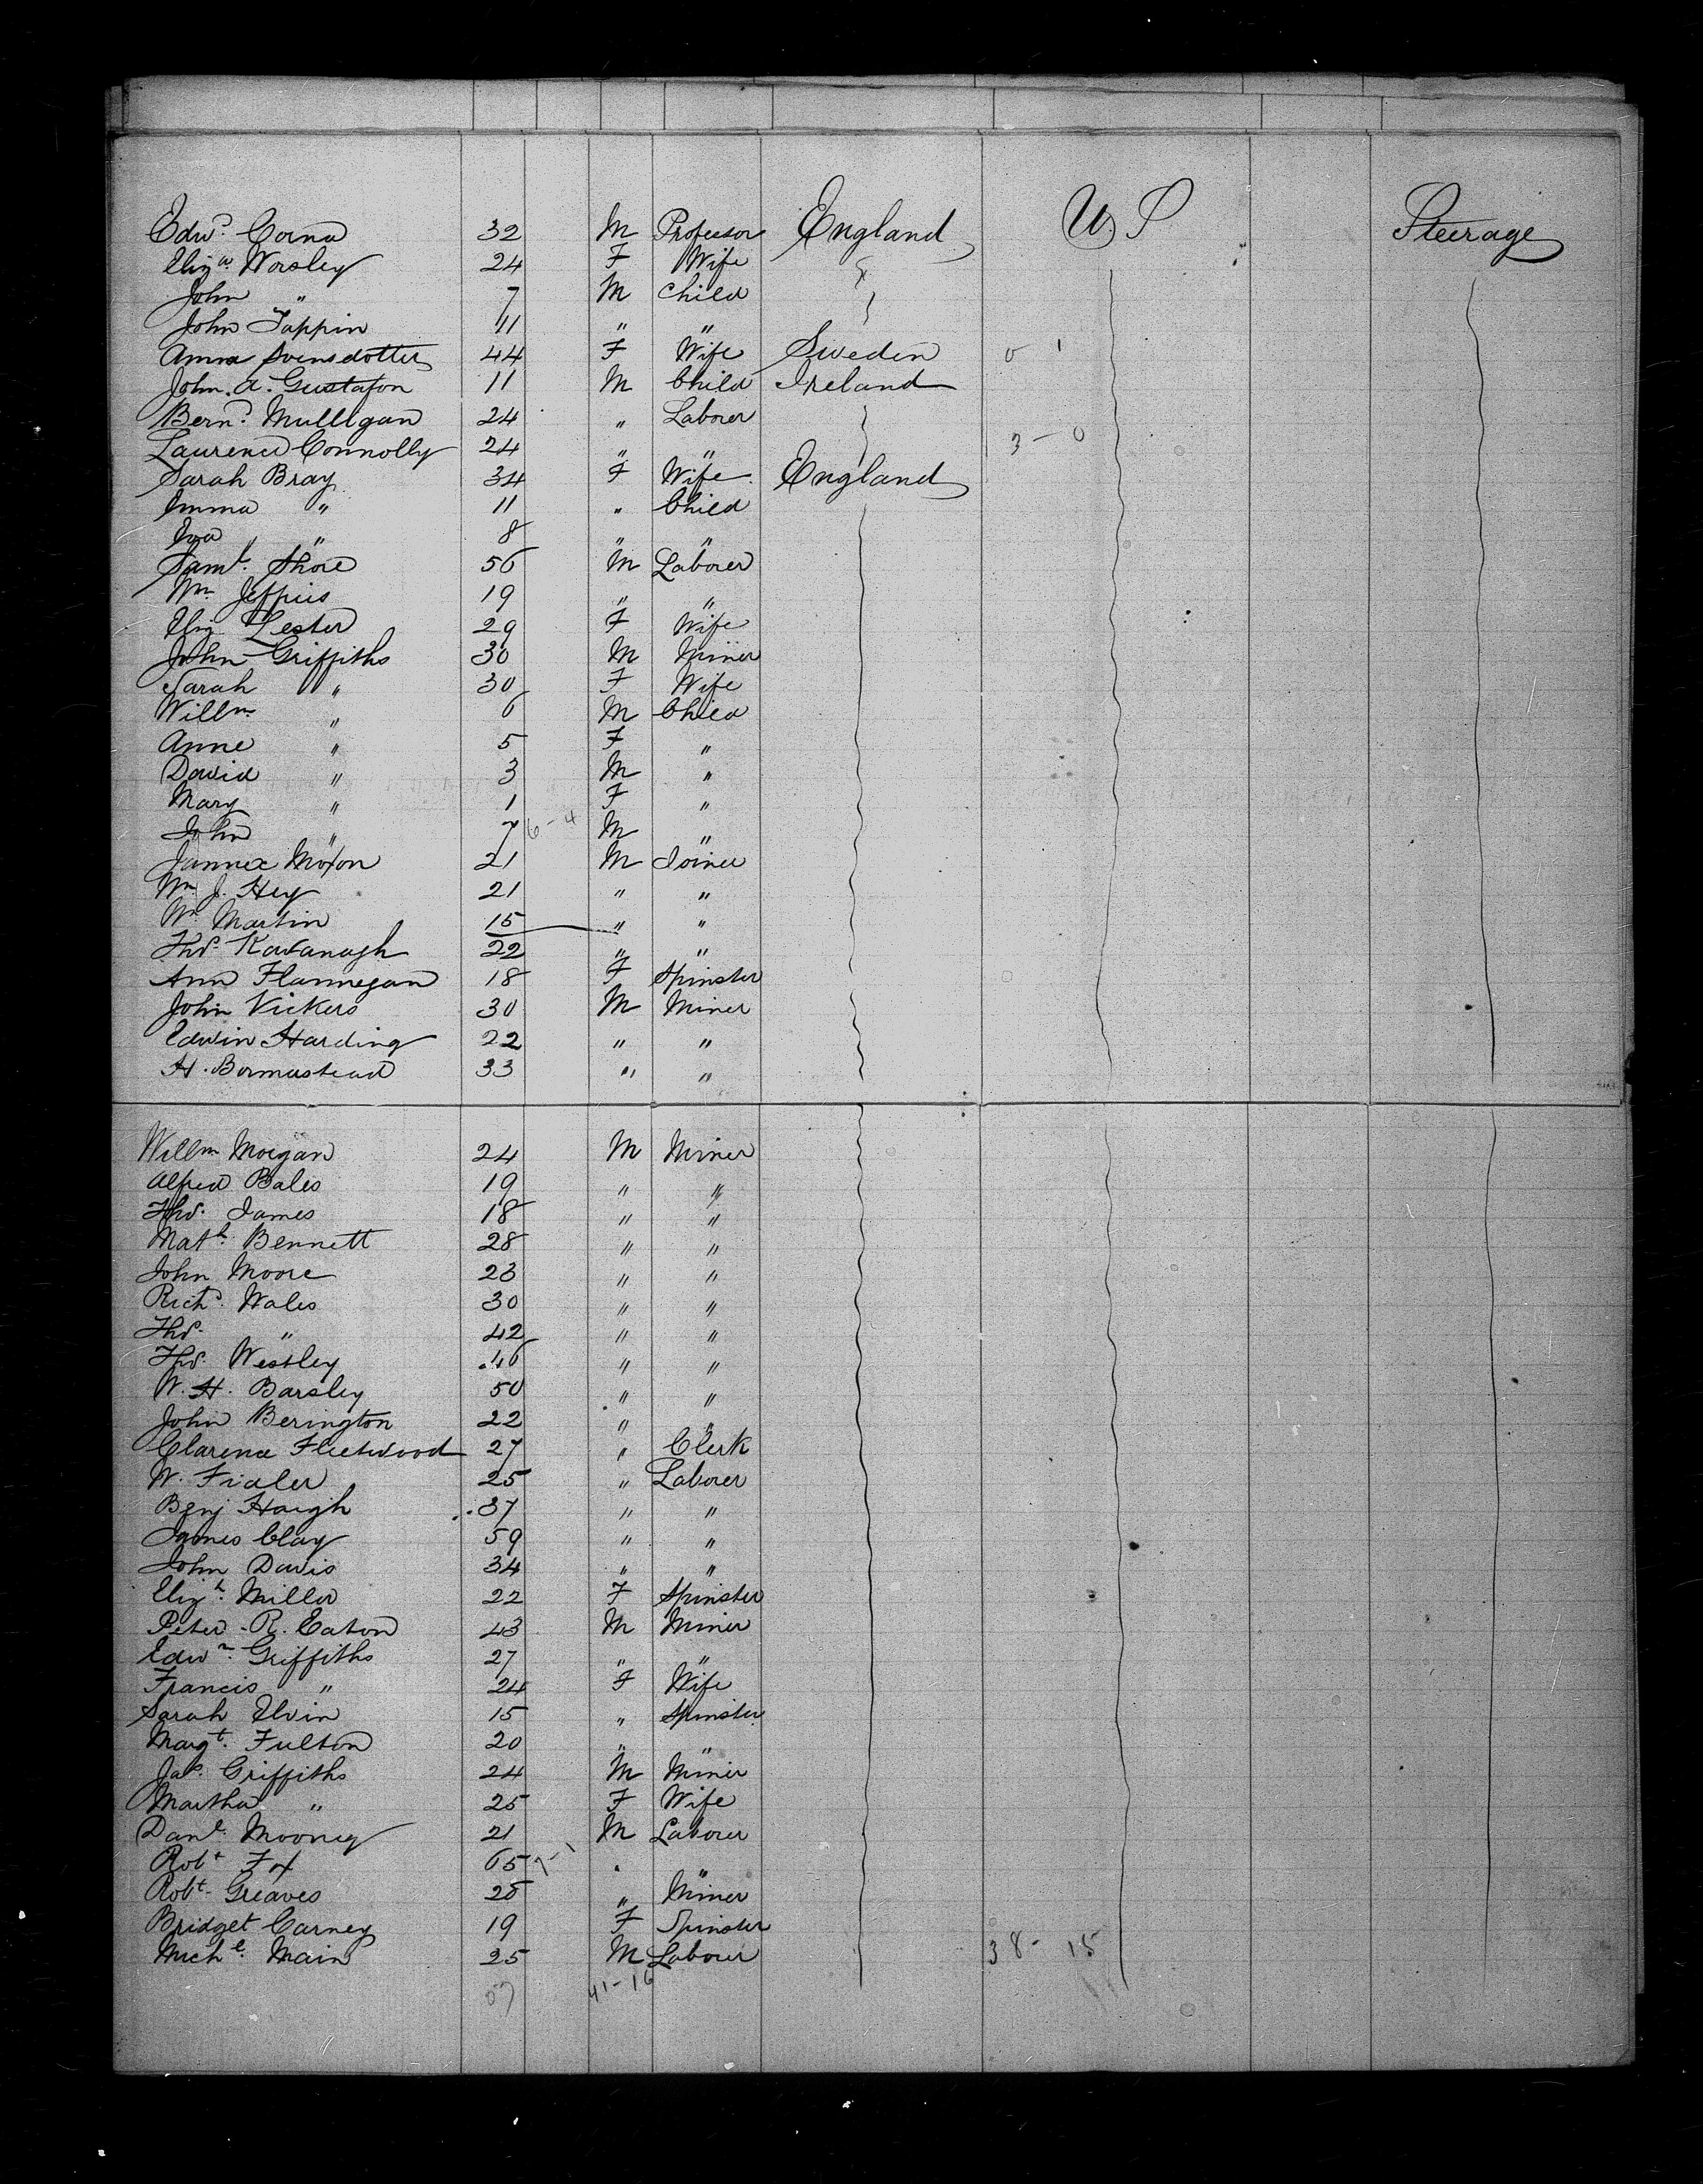 Edwd. Corna 32 M Professor England U S Steerage
Eliza. Worsley 24 F Wife
John " 7 M Child
John Tappin 11 " "
Anna Svensdotter 44 F Wife Sweden 0 1
John. A. Gustafson 11 M Child Ireland
Bernd. Mulligan 24 " Laborer
Laurence Connolly 24 " " 3 - 0
Sarah Bray 34 F Wife England
Emma " 11 " Child
Eva " 8 " "
Saml. Shore 56 M Laborer
Wm Jeffries 19 " "
Eliz Lester 29 F Wife
John Griffiths 30 M Miner
Sarah " 30 F Wife
Willm " 6 M Child
Anne " 5 F "
David " 3 M "
Mary " 1 F "
John " 7 6-4 M "
Moxon 21 M Joiner
Wm J. Hey 21 " "
Wm Martin 15 " "
Thos. Kavanagh 22 " "
Ann Flannegan 18 F Spinster
John Vickers 30 M Miner
Edwin Harding 22 " "
H. 33 " "
Willm Morgan 24 M Miner
Alfred Bales 19 " "
Thos. James 18 " "
Math. Bennett 28 " "
John Moore 23 " "
Richd. Wales 30 " "
Thos. " 42 " "
Thos. Westley 46 " "
W. H. Barsley 50 " "
John Berington 22 " "
Clarence Fleetwood 27 " Clerk
W. Fidler 25 " Laborer
Benj Haigh 37 " "
James Clay 59 " "
John Davis 34 " "
Elizh. Miller 22 F Spinster
Peter. R. Eaton 43 M Miner
Edwn. Griffiths 27 " "
Francis " 24 F Wife
Sarah Elvin 15 " Spinster
Margt. Fulton 20 " "
Jas. Griffiths 24 M Miner
Martha " 25 F Wife
Danl. Mooney 21 M Laborer
Robt Fox 65 7-1 " "
Robt. Greaves 28 " Miner
Bridget Carney 19 F Spinster
Michl. Main 25 M Laborer 38 - 15
57 41-16